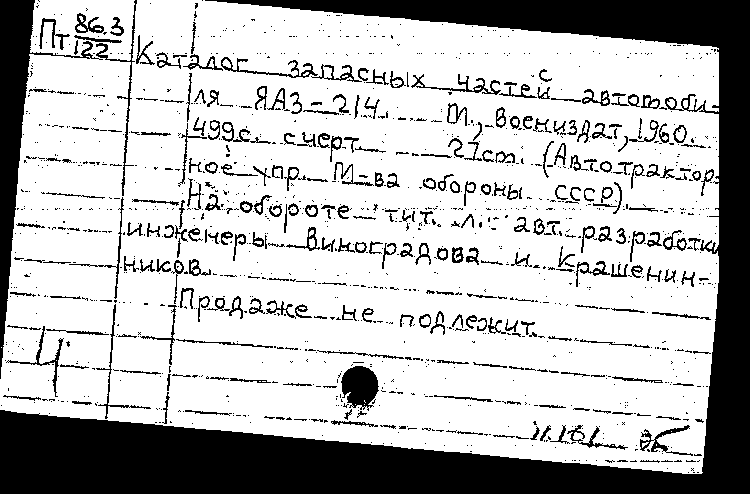 Пт 86.3
122
Каталог запасных частей автомоби-
ля ЯАЗ-214. М., Воениздат, 1960.
499с. с черт. 27см. (Автотрактор-
ное упр. М-ва обороны СССР).
На обороте тит. л.: авт. разработки
инженеры Виноградова и Крашенин-
ников.
Продаже не подлежит.
Ч